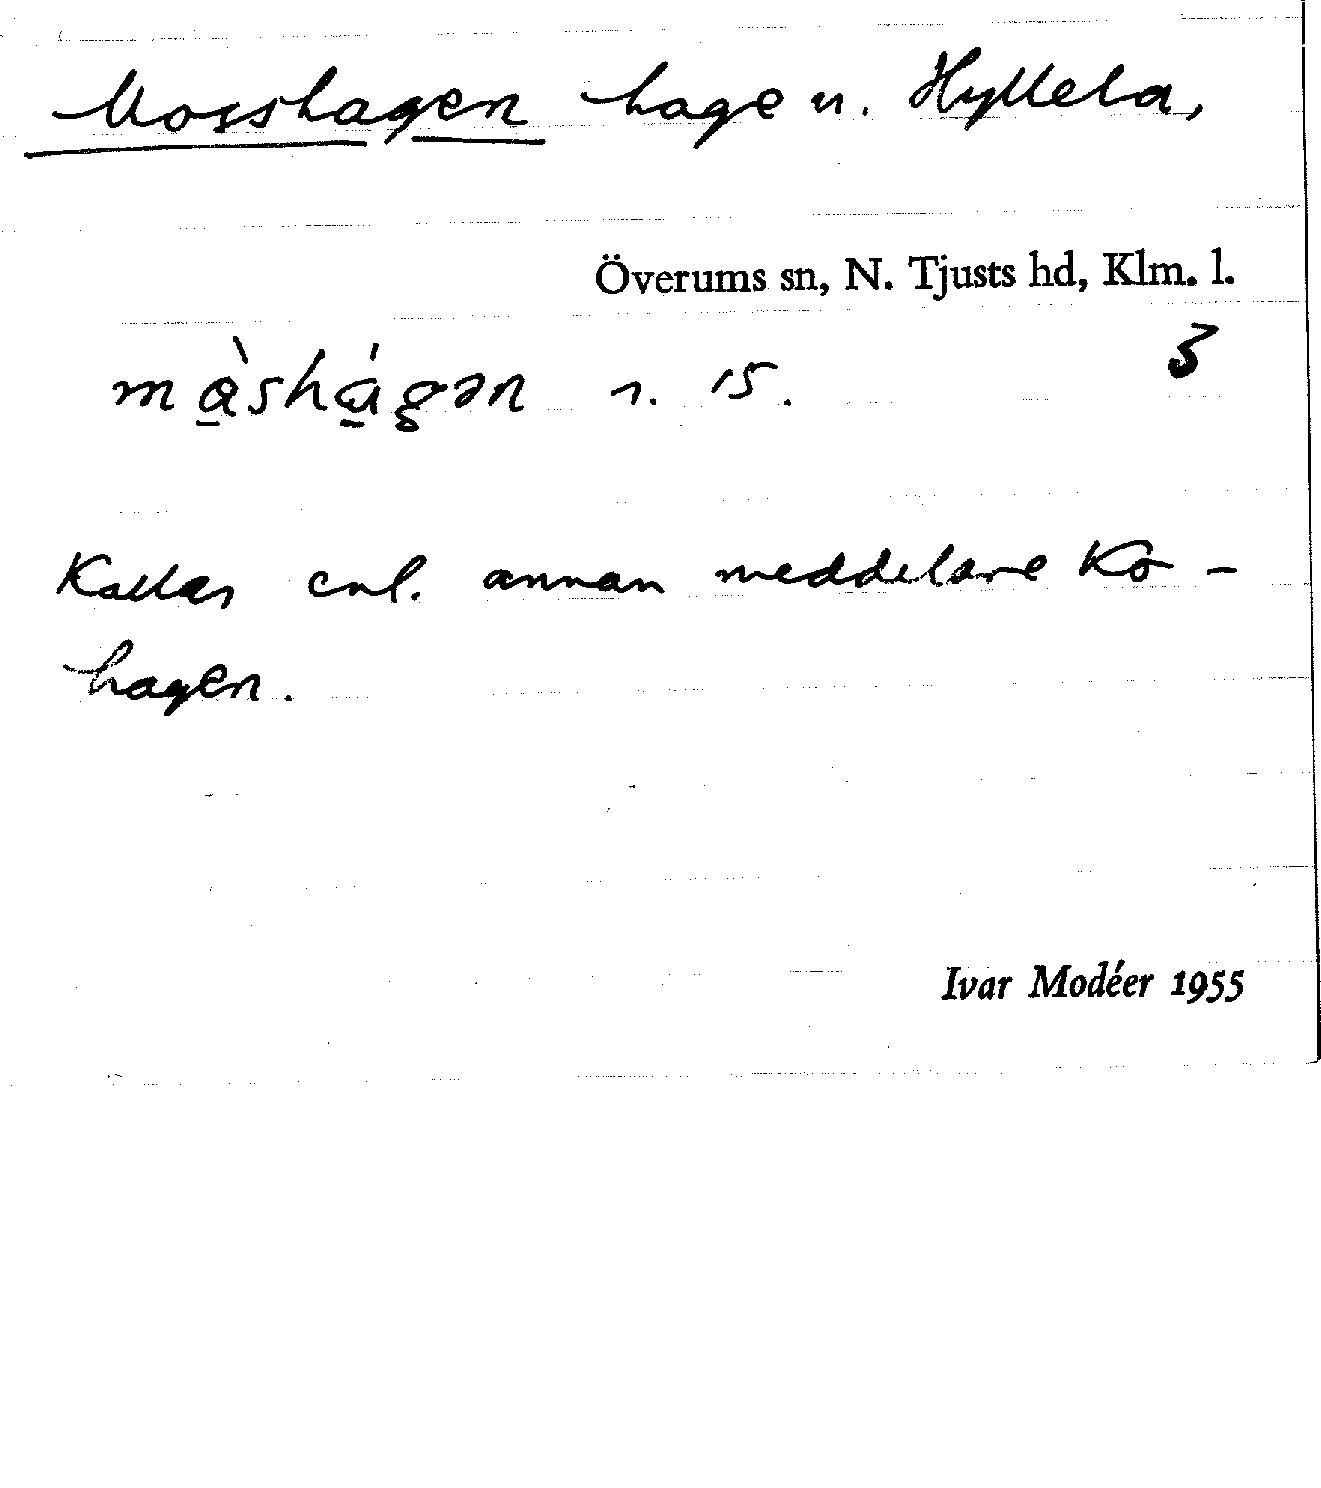 Mosshagen hage u. Hyllela,
Överums sn, N. Tjusts hd, Klm. l.
3
må̀shágən r. 15.
Kallas enl. annan meddelare Ko-
hagen.
Ivar Modéer 1955